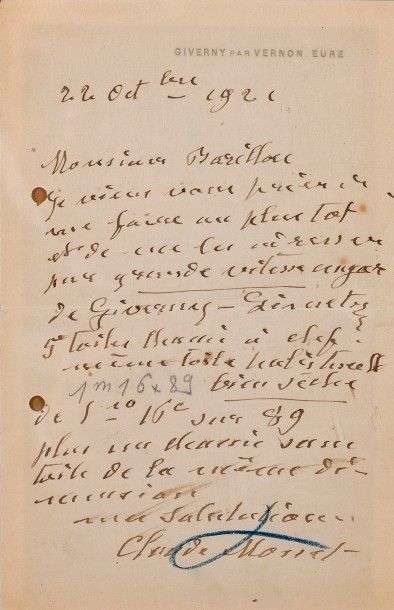 GIVERNY PAR VERNON EURE
22 Octbre - 1921
Monsieur Barillon
Je viens vous prier de
me faire au plus tot
et de me les adresser
par grande vitesse en gare
de Giverny - Limetz
5 toiles chassis à clef
même toile
1m16x89 bien sèche
de 1m 16c sur 89
plus un chassis sans
toile de la même di-
mension
mes salutations
Claude Monet